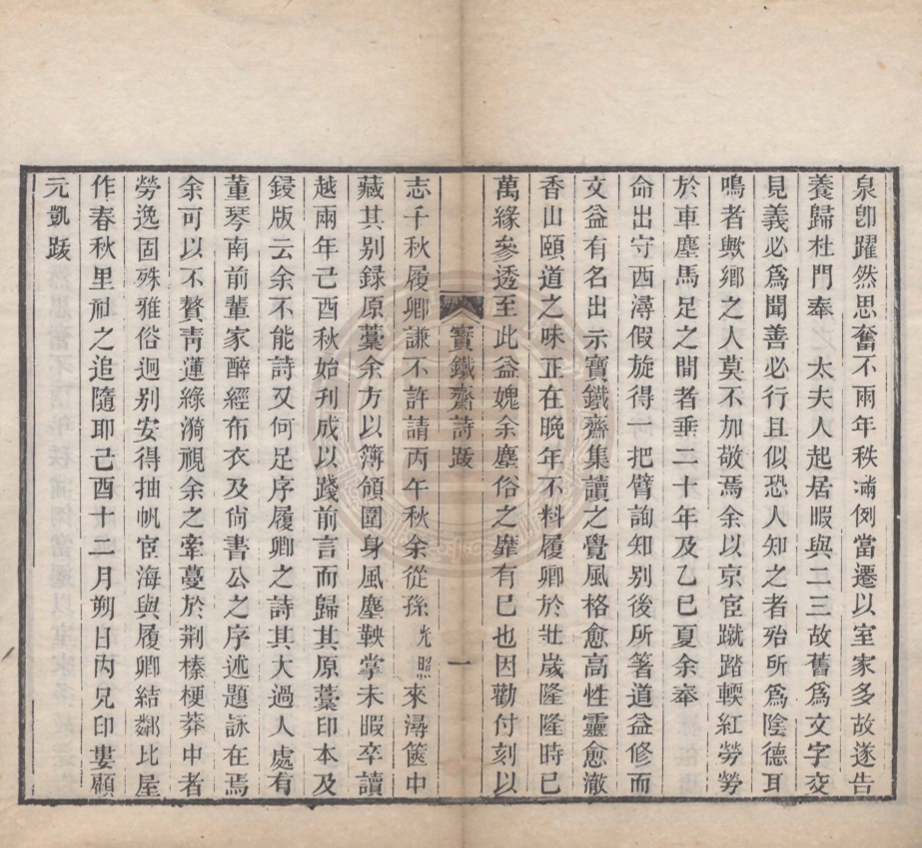 泉卽躍然思奮不兩年秩滿例當遷以室家多故遂告
養歸杜門奉 太夫人起居暇與二三故舊爲文字交
見義必爲聞善必行且似恐人知之者殆所爲陰德耳
鳴者歟鄉之人莫不加敬焉余以京宦蹴踏輭紅勞勞
於車塵馬足之間者垂二十年及乙巳夏余奉
命出守西潯假旋得一把臂詢知别後所箸道益修而
文益有名出示寶鐵齋集讀之覺風格愈高性靈愈澈
香山頤道之味正在晚年不料履卿於壯歲隆隆時已
萬緣參透至此益媿余塵俗之靡有已也因勸付刻以
寶鐵齋詩跋
一
志千秋履卿謙不許請丙午秋余從孫光照來潯篋中
藏其别録原藁余方以簿領圍身風塵鞅掌未暇卒讀
越兩年己酉秋始刋成以踐前言而歸其原藁印本及
鋟版云余不能詩又何足序履卿之詩其大過人處有
董琴南前輩家醉經布衣及尙書公之序述題詠在焉
余可以不贅靑蓮綠漪視余之牽蔓於荆榛梗莽中者
勞逸固殊雅俗迥别安得抽帆宦海與履卿結鄰比屋
作春秋里社之追隨耶己酉十二月朔日丙兄印婁顧
元凱跋